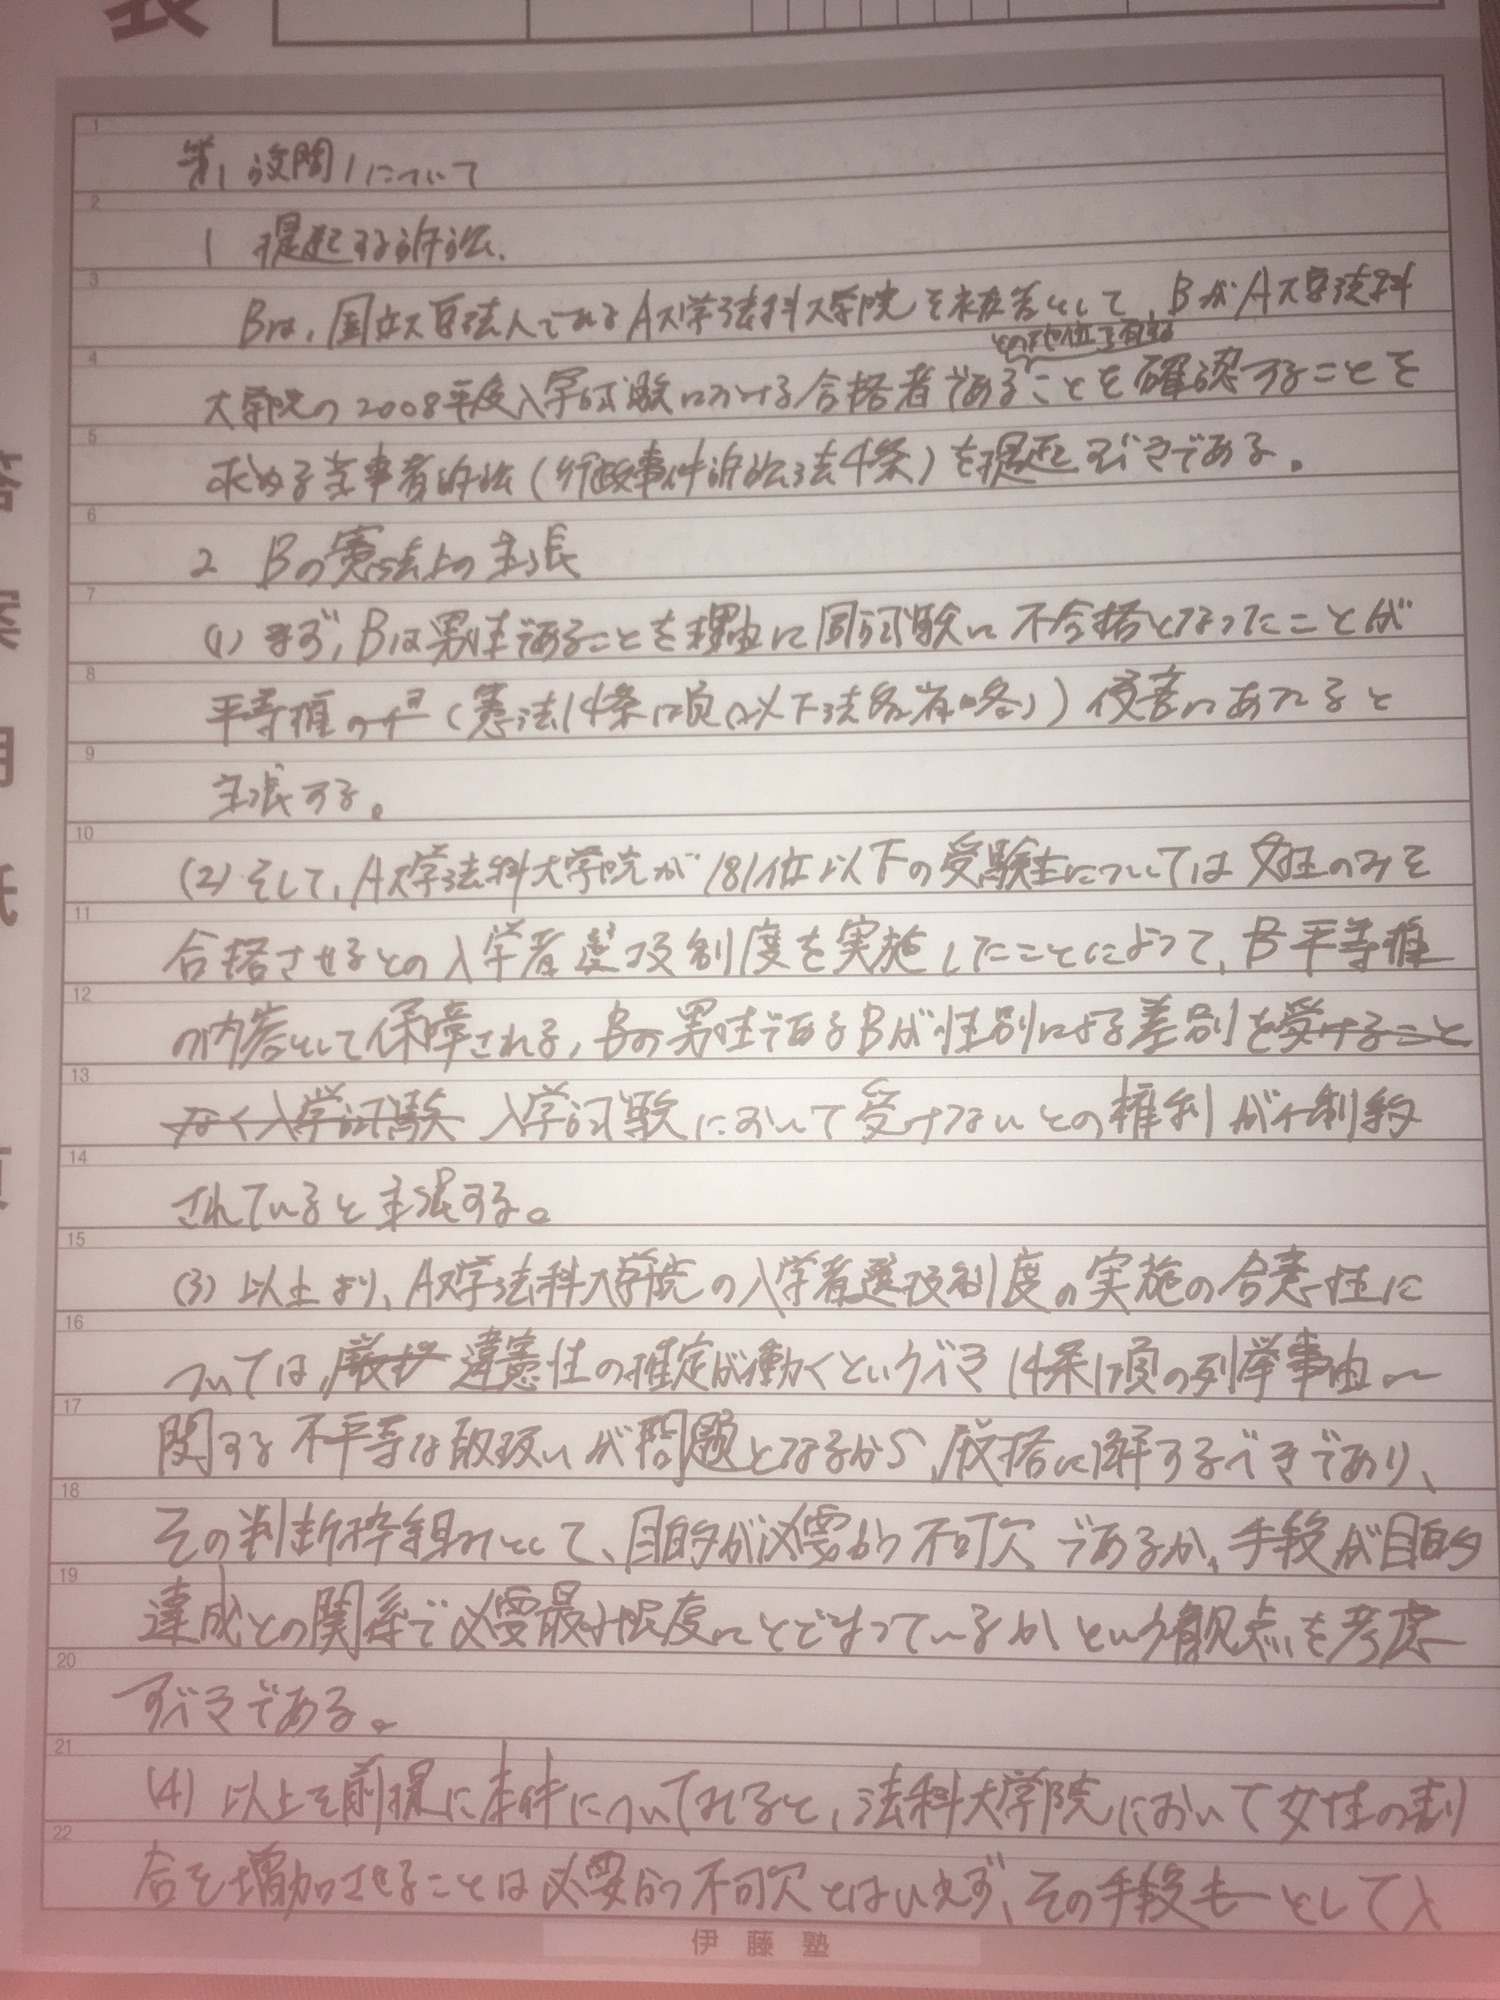 表
答案用紙
1
第1 設問1について
2
1 提起する訴訟
3
Bは、国立大学法人であるA大学法科大学院を被告として、BがA大学法科
との地位を有する
4
大学院の2008年度入学試験における合格者であることを確認することを
5
求める当事者訴訟(行政事件訴訟法4条)を提起すべきである。
6
2 Bの憲法上の主張
7
(1) まず、Bは男性であることを理由に同試験に不合格となったことが
8
平等権の(憲法14条1項(以下法名省略))侵害にあたると
9
主張する。
10
(2) そして、A大学法科大学院が181位以下の受験生については女性のみを
11
合格させるとの入学者選抜制度を実施したことによって、B平等権
12
の内容として保障される、Bの男性であるBが性別による差別を受けること
13
なく入学試験 入学試験において受けないとの権利が制約
14
されていると主張する。
15
(3) 以上より、A大学法科大学院の入学者選抜制度の実施の合憲性に
16
ついては、厳格 違憲性の推定が働くというべき14条1項の列挙事由に
17
関する不平等な取扱いが問題となるから、厳格に解するべきであり、
18
その判断枠組みとして、目的が必要かつ不可欠であるか、手段が目的
19
達成との関係で必要最小限度にとどまっているかという観点を考慮
20
すべきである。
21
(4) 以上を前提に本件についてみると、法科大学院において女性の割
22
合を増加させることは必要かつ不可欠とはいえず、その手段も として入
伊藤塾